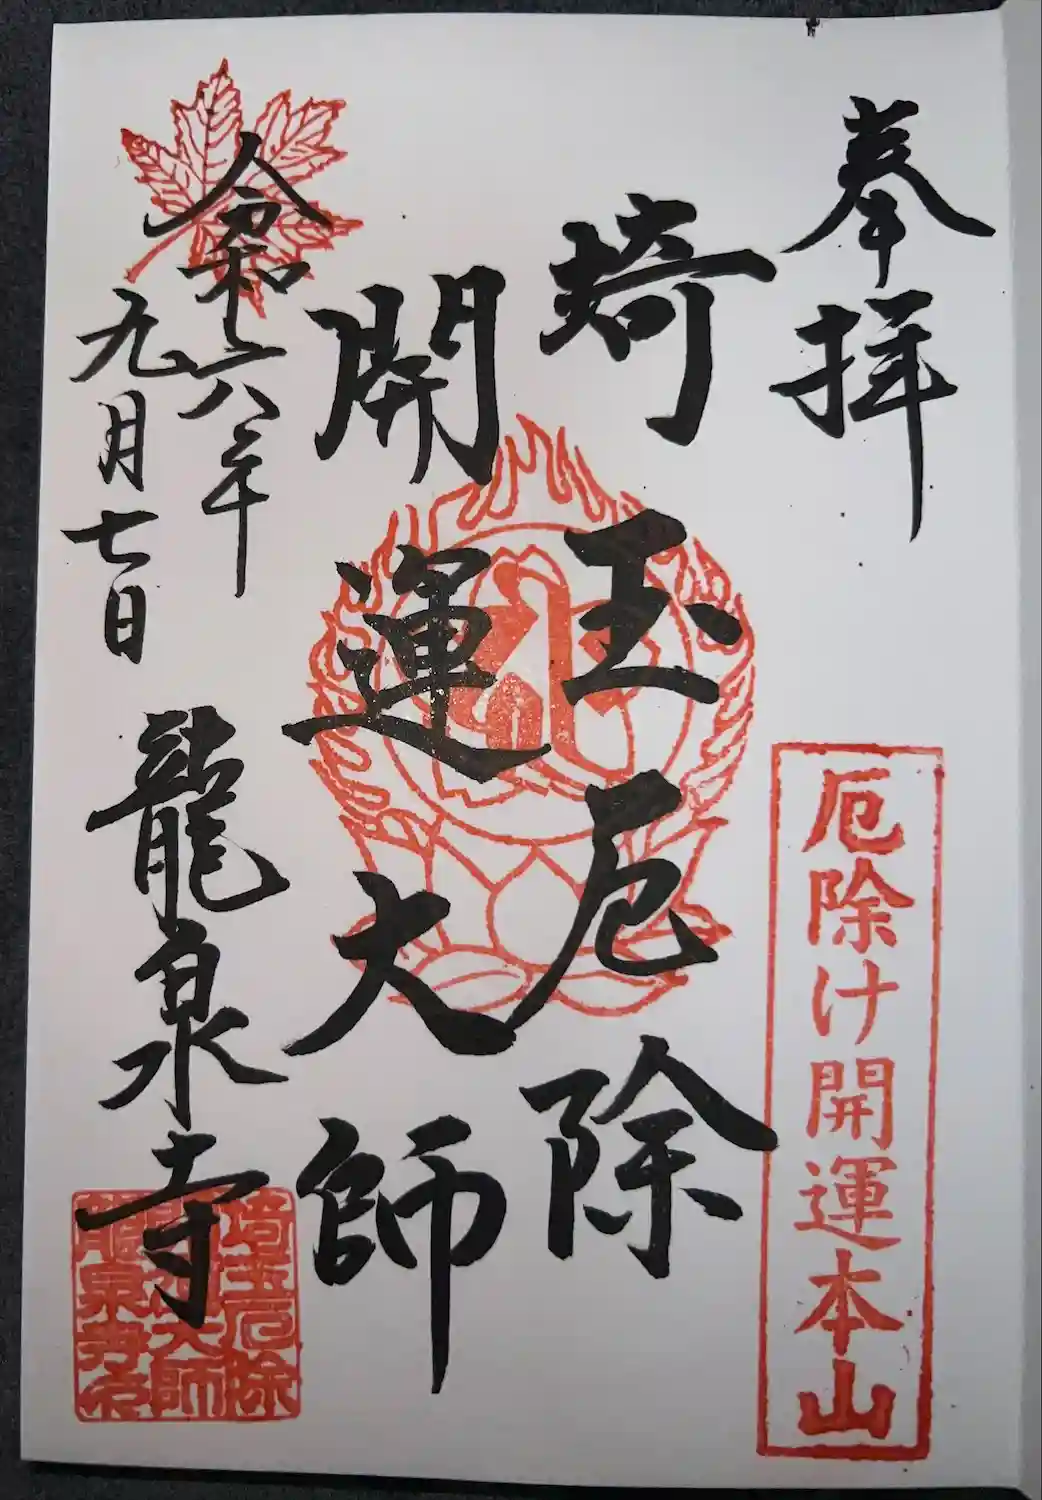 奉拝
厄除け開運本山
埼玉厄除
開運大師
令和六年
九月七日
龍泉寺
埼玉厄除
開運大師